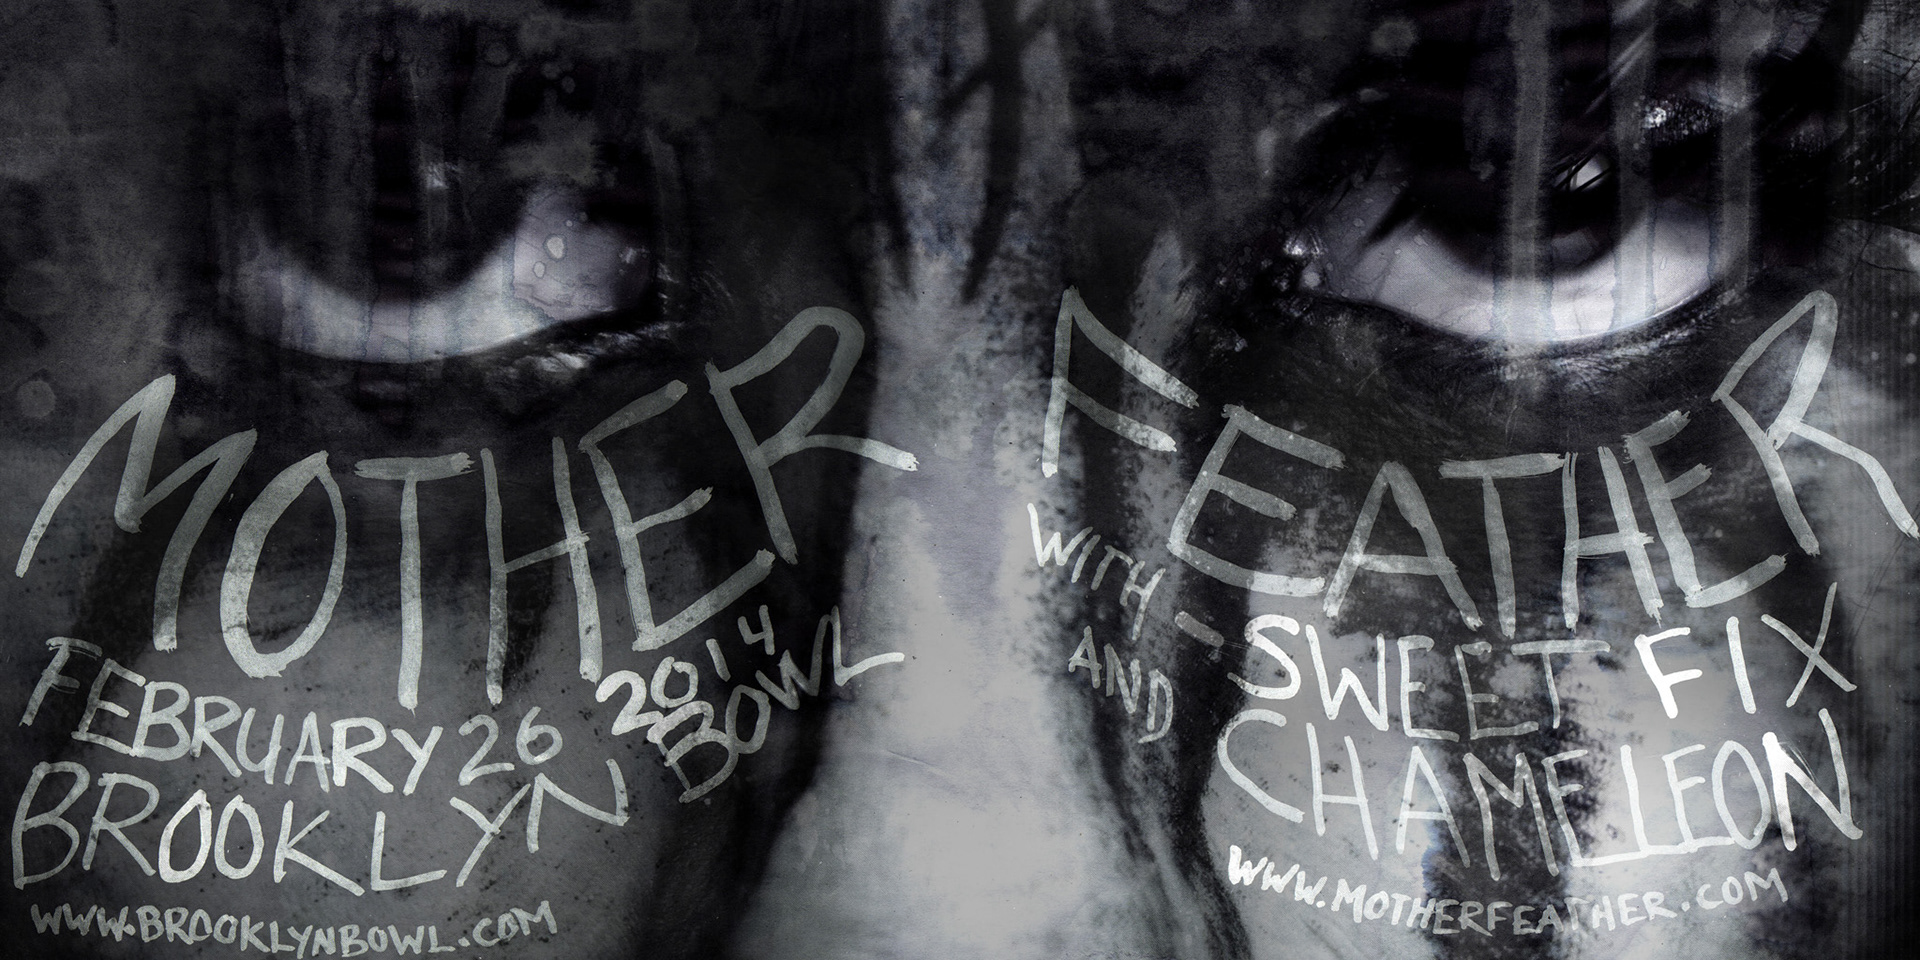 MOTHER FEATHER
FEBRUARY 26 2014
BROOKLYN BOWL
WWW.BROOKLYNBOWL.COM
WITH - SWEET FIX
AND CHAMELEON
WWW.MOTHERFEATHER.COM